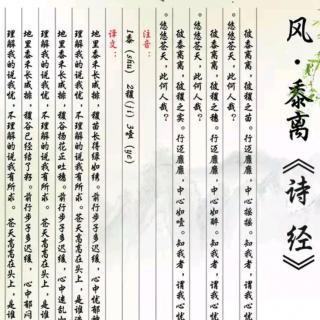 风·黍离《诗经》
彼黍离离，彼稷之苗。行迈靡靡，中心摇摇。知我者，谓我心忧
。悠悠苍天，此何人哉？
彼黍离离，彼稷之穗。行迈靡靡，中心如醉。知我者，谓我心忧
。悠悠苍天，此何人哉？
彼黍离离，彼稷之实。行迈靡靡，中心如噎。知我者，谓我心忧
。悠悠苍天，此何人哉？
注音：
1黍（shu） 2稷（ji） 3噎（ye）
译文：
地里黍禾长成排，稷苗长得绿如绣。前行步子多迟缓，心中忧郁
理解我的说我忧，不理解的说我有所求。苍天高高在头上，是谁
地里黍禾长成排，稷谷扬花正吐穗。前行步子多迟缓，心中迷乱
理解我的说我忧，不理解的说我有所求。苍天高高在头上，是谁
地里黍禾长成排，稷谷已经结了籽。前行步子多迟缓，心中郁闷
理解我的说我忧，不理解的说我有所求。苍天高高在头上，是谁